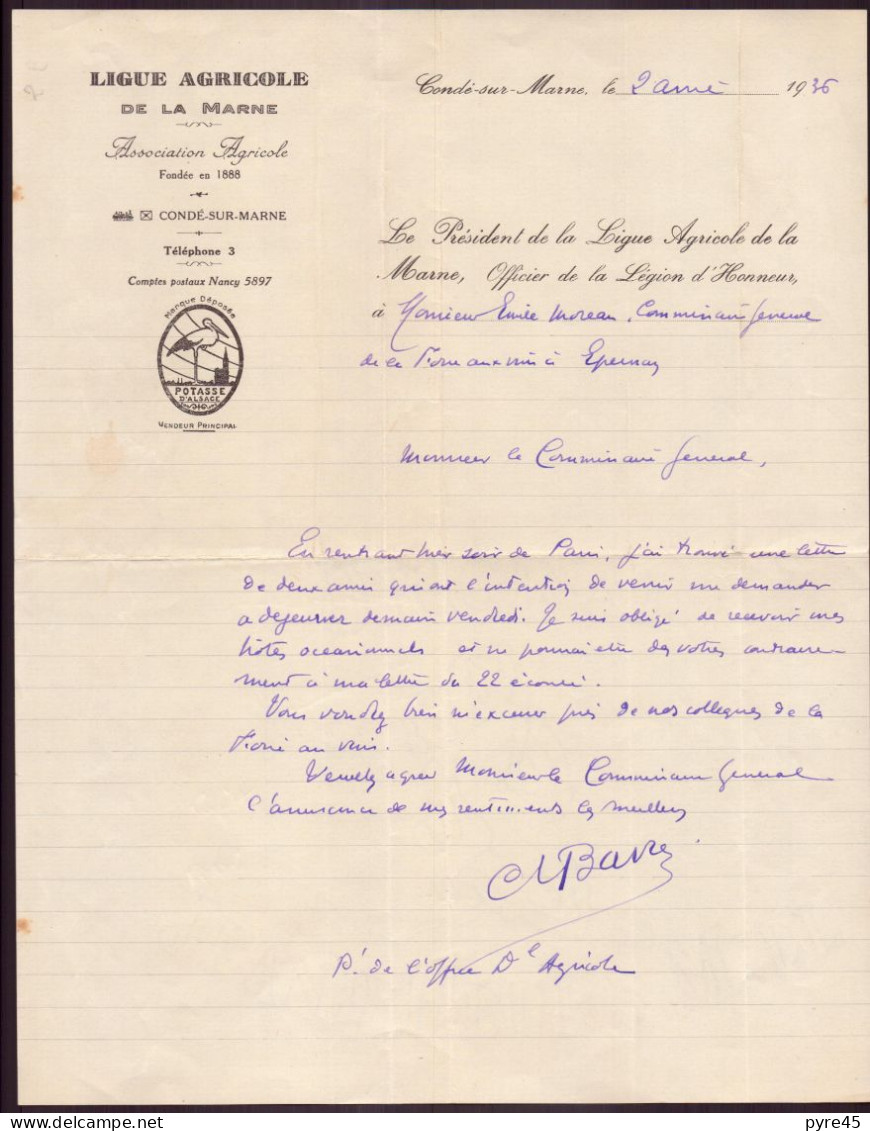 LIGUE AGRICOLE
DE LA MARNE
Association Agricole
Fondée en 1888
CONDÉ-SUR-MARNE
Téléphone 3
Comptes postaux Nancy 5897
Marque Déposée
POTASSE
D'ALSACE
VENDEUR PRINCIPAL
Condé-sur-Marne, le 2 1936
Le Président de la Ligue Agricole de la
Marne, Officier de la Légion d'Honneur,
à Monsieur Emile Moreau, Commissaire General
de la Foire aux vins à Epernay
Monsieur le Commissaire General,
En rentrant hier soir de Paris, j'ai trouvé une lettre
de deux amis qui ont l'intention de venir me demander
a dejeuner demain vendredi. Je suis obligé de recevoir mes
hôtes occasionnels et ne pourrai etre des votres contraire-
ment à ma lettre du 22 écoulé.
Vous voudrez bien m'excuser près de nos collegues de la
Foire au vins.
Veuillez agreer Monsieur le Commissaire General
l'assurance de mes sentiments les meilleurs
P.t de l'office D.l Agricole
pyre45